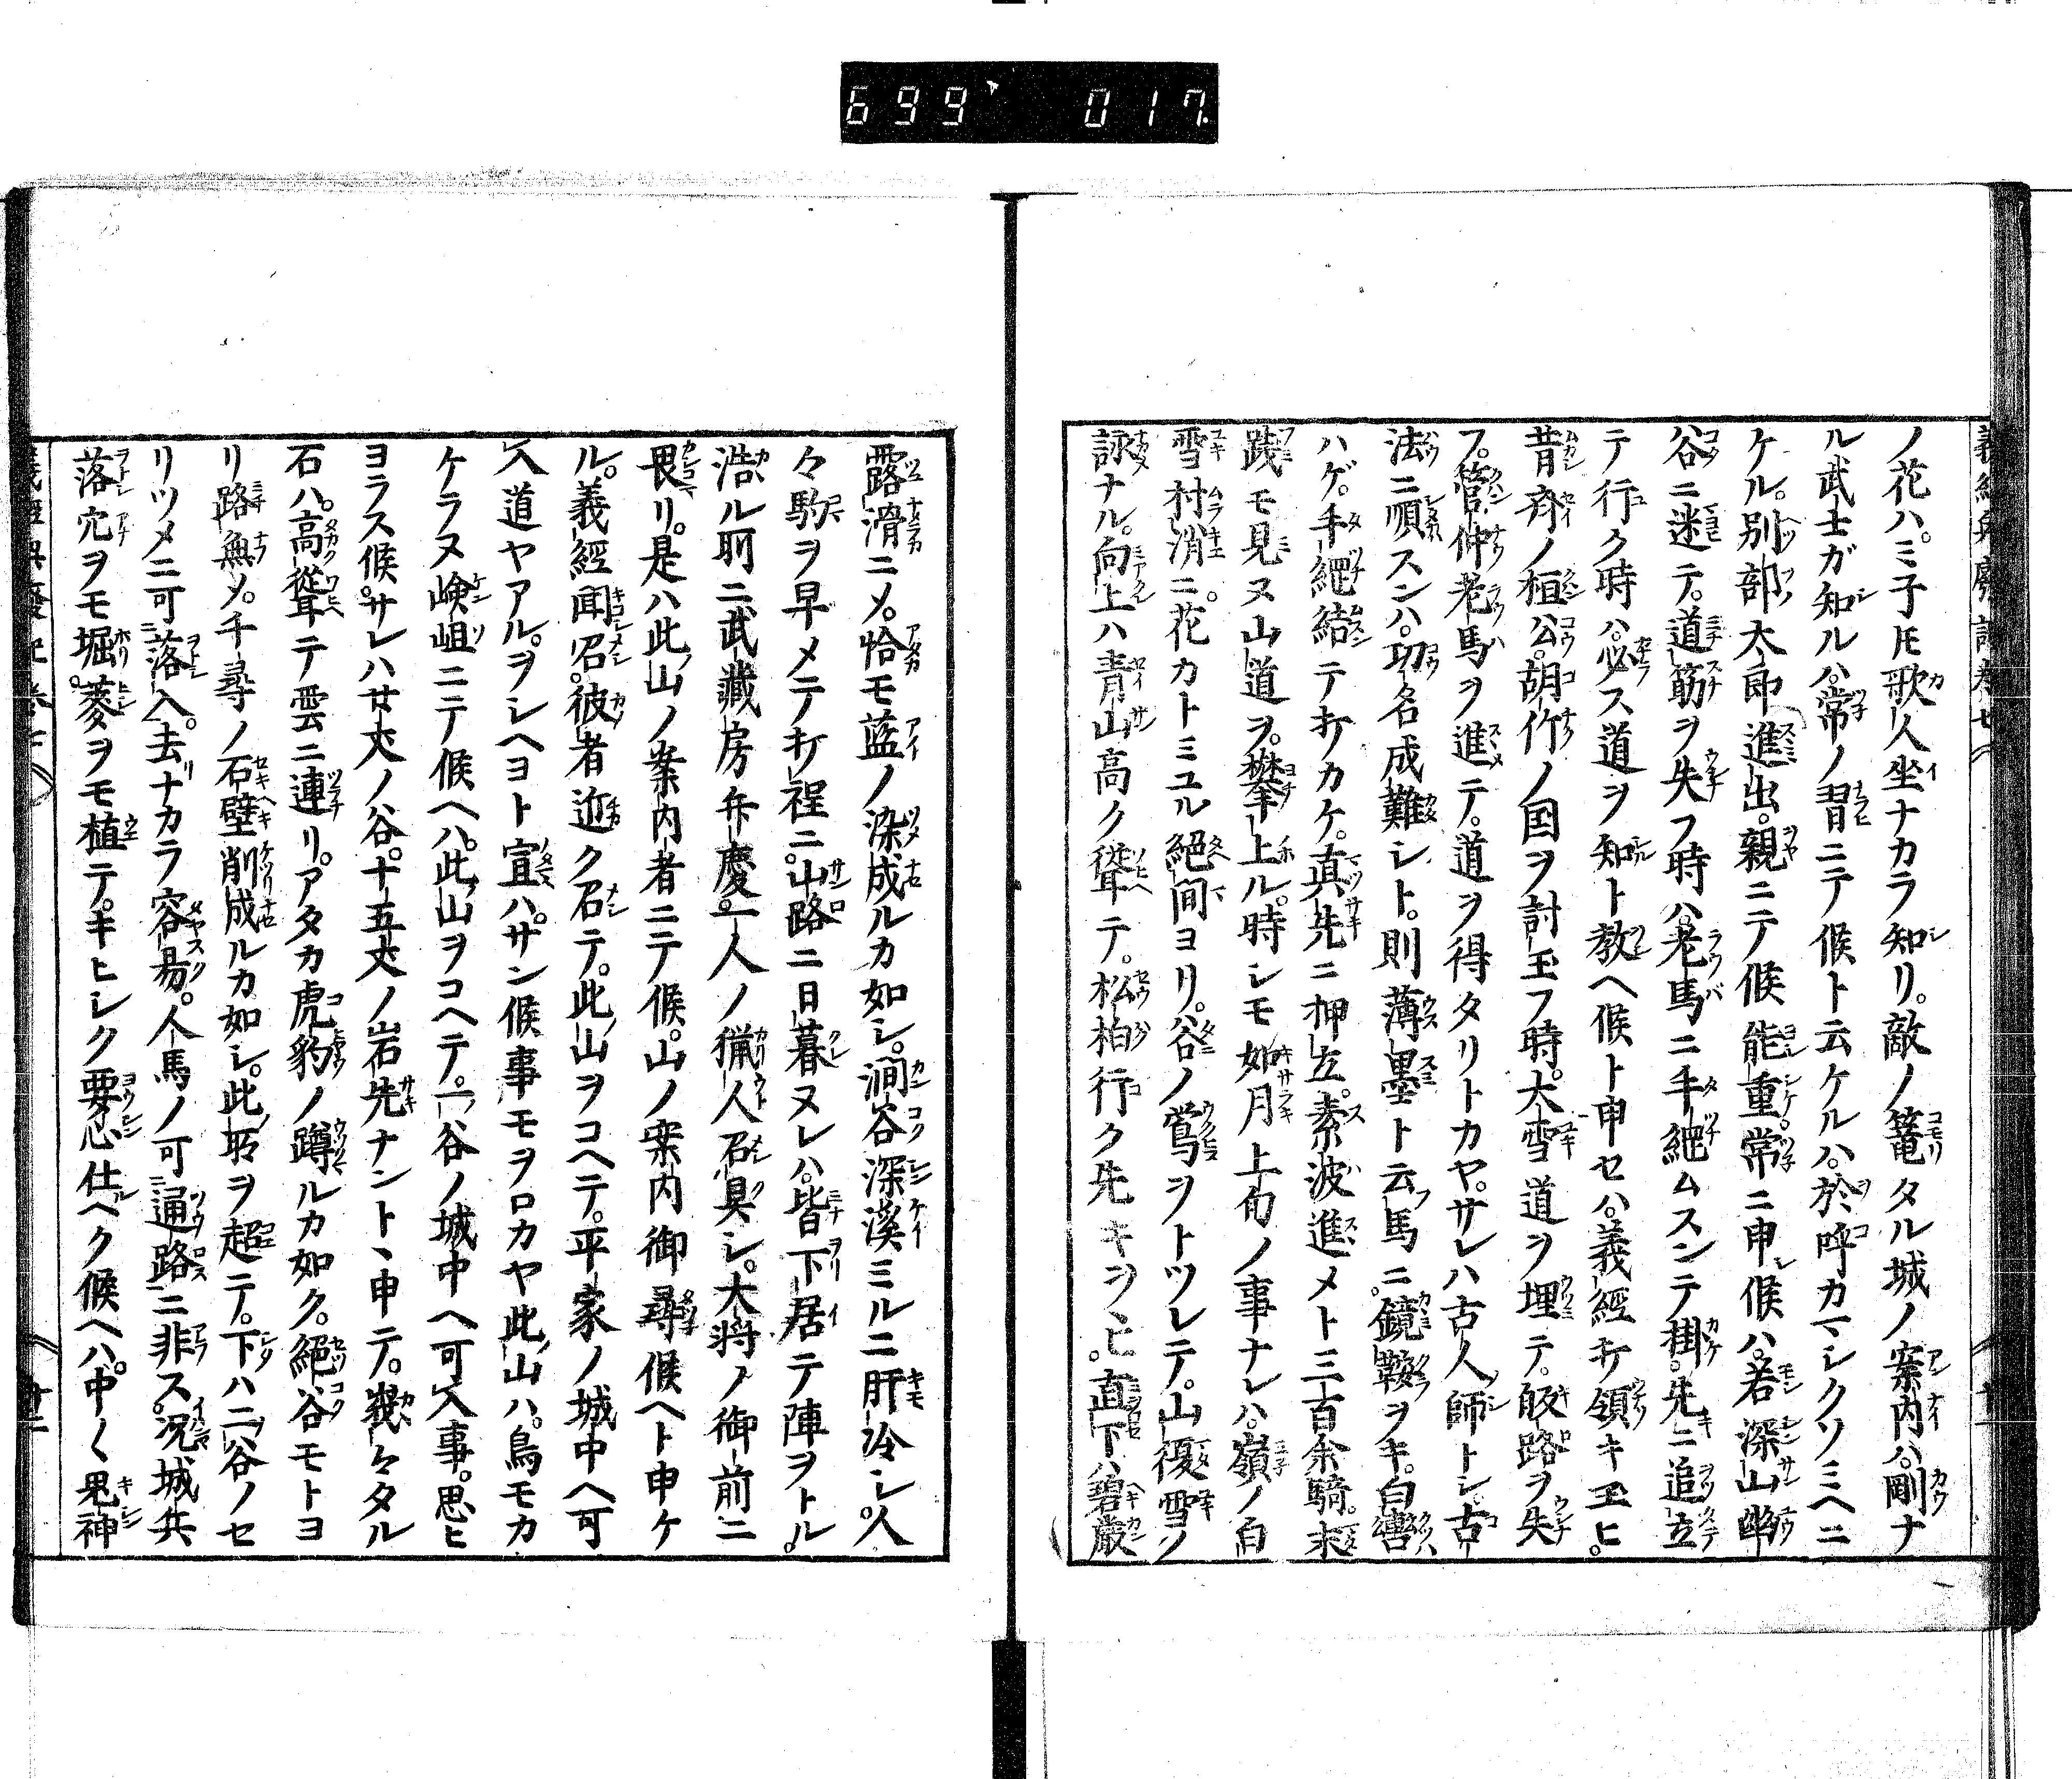 699 017
ノ花ハ。ミ子𪜈歌人坐ナカラ知リ。敵ノ篭タル城ノ案内ハ。剛ナ
ル武士ガ知ルハ。常ノ習ニテ候ト云ケルハ。於呼カマシクソミヘニ
ケル。別部太郎進出。親ニテ候能重。常ニ申候ハ。若深山幽
谷ニ迷テ。道筋ヲ失フ時ハ。老馬ニ手綱ムスンテ掛。先ニ追立
テ行ク時ハ。必ス道ヲ知ト教ヘ候ト申セハ。義經打領キ玉ヒ。
昔斉ノ桓公。胡竹ノ国ヲ討玉フ時。大雪道ヲ埋テ。皈路ヲ失
フ。管仲老馬ヲ進テ。道ヲ得タリトカヤ。サレハ古人師トシ。古
法ニ順スンハ。功名成難シト。則薄墨ト云フ馬ニ。鏡鞍ヲキ。白轡
ハゲ。手綱結テ打カケ。真先ニ押立。素波進メト三百余騎。未
践モ見ヌ山道ヲ。攀上ル。時シモ如月上旬ノ事ナレハ。嶺ノ白
雪村消ニ。花カトミユル絕間ヨリ。谷ノ鴬ヲトツレテ。山復雪ノ
詠ナル。向上ハ青山高ク聳テ。松柏行ク先キヲヽヒ。直下ハ碧巌
露滑ニメ。恰モ藍ノ染成ルカ如シ。澗谷深渓ミルニ肝冷シ。人
々駒ヲ早メテ打程ニ。山路ニ日暮ヌレハ。皆下居テ陣ヲトル。
浩ル所ニ武藏房弁慶。一人ノ猟人召具シ。大将ノ御前ニ
畏リ。是ハ此山ノ案内者ニテ候。山ノ案内御尋候ヘト申ケ
ル。義經聞召。彼者近ク召テ。此山ヲコヘテ。平家ノ城中ヘ可
入道ヤアル。ヲシヘヨト宣ハ。サン候事モヲロカヤ此山ハ。鳥モカ
ケラヌ嶮岨ニテ候ヘハ。此山ヲコヘテ。一谷ノ城中ヘ可入事。思ヒ
ヨラス候。サレハ廿丈ノ谷。十五丈ノ岩先ナントヽ申テ。峩々タル
石ハ。高聳テ雲ニ連リ。アタカ虎豹ノ蹲ルカ如ク。絕谷モトヨ
リ路無メ。千尋ノ石壁削成ルカ如シ。此所ヲ超テ。下ハ二谷ノセ
リツメニ可落入。去ナカラ容易。人馬ノ可通路ニ非ス。況城兵
落穴ヲモ堀。菱ヲモ植テ。キヒシク要心仕ヘク候ヘハ。中〱鬼神